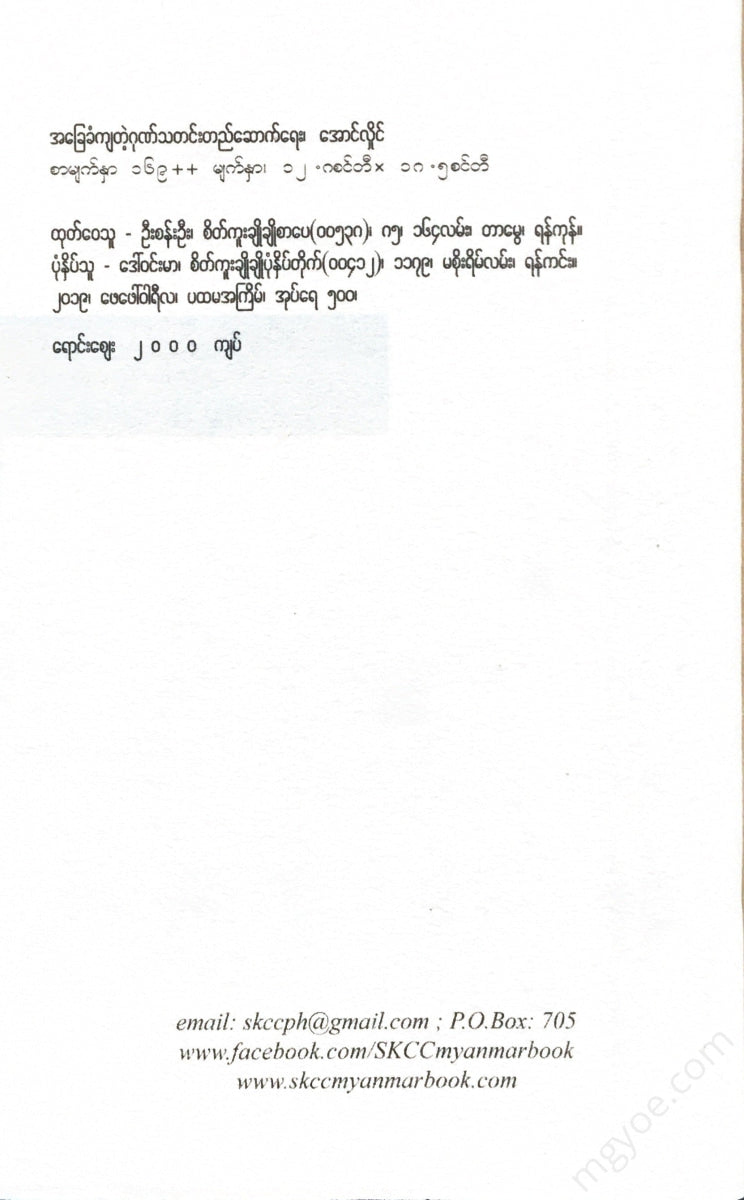 အခြေခံကျတဲ့ဂုဏ်သတင်းတည်ဆောက်ရေး၊ အောင်လှိုင်
စာမျက်နှာ ၁၆၉++ မျက်နှာ၊ ၁၂.၈စင်တီ× ၁၈.၅စင်တီ
ထုတ်ဝေသူ - ဦးစန်းဦး၊ စိတ်ကူးချိုချိုစာပေ(၀၀၅၃၈)၊ ၈၅၊ ၁၆၄လမ်း၊ တာမွေ၊ ရန်ကုန်။
ပုံနှိပ်သူ - ဒေါ်ဝင်းမာ၊ စိတ်ကူးချိုချိုပုံနှိပ်တိုက်(၀၀၄၁၂)၊ ၁၁၇၉၊ မစိုးရိမ်လမ်း၊ ရန်ကင်း။
၂၀၁၉၊ ဖေဖေါ်ဝါရီလ၊ ပထမအကြိမ်၊ အုပ်ရေ ၅၀၀၊
ရောင်းဈေး ၂၀၀၀ ကျပ်
email: skccph@gmail.com ; P.O.Box: 705
www.facebook.com/SKCCmyanmarbook
www.skccmyanmarbook.com
mgyoe.com